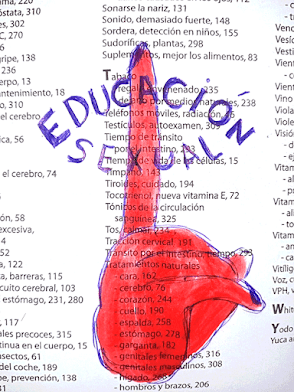 mama, 220
óstata, 310
es, 302
C, 270
6
gripe, 138
36
erpo, 13
antenimiento, 18
, 310
el cerebro, 74
ica, 56
ón, 58
excesiva,
o, 44
s, 122
a, barreras, 115
cuito cerebral, 103
estómago, 231, 280
, 117
ales precoces, 315
ntinua en el cuerpo, 15
nsectos, 61
del coche, 189
pe, prevención, 138
31
Sonarse la nariz, 131
Sonido, demasiado fuerte, 148
Sordera, detección en niños, 155
Sudoríficas, plantas, 298
Suplementos, mejor los alimentos, 83
T
EDUCACIÓN
SEXUAL
Teléfonos móviles, radiación,
Testículos, autoexamen,
Tiempo de tránsito
Tiempo de vida de las células, 15
Tímpano, 143
Tiroides, cuidado, 194
Tocotrienol, nueva vitamina E, 72
Tónicos de la circulación
sanguínea, 325
Tos, calmar, 234
Tracción cervical, 191
Tránsito por el intestino, tiempo, 293
Tratamientos naturales
- cara, 162
- cerebro, 76
- corazón, 244
- cuello, 190
- espalda, 258
- estómago, 278
- garganta, 182
- genitales femeninos, 316
- genitales masculinos, 308
- hígado, 268
- hombros y brazos, 206
Venc
Vesíc
Visió
Vitam
Vitam
Vitam
Vitíli
Voz, c
VPH, v
Whit
Yodo
Yuca a